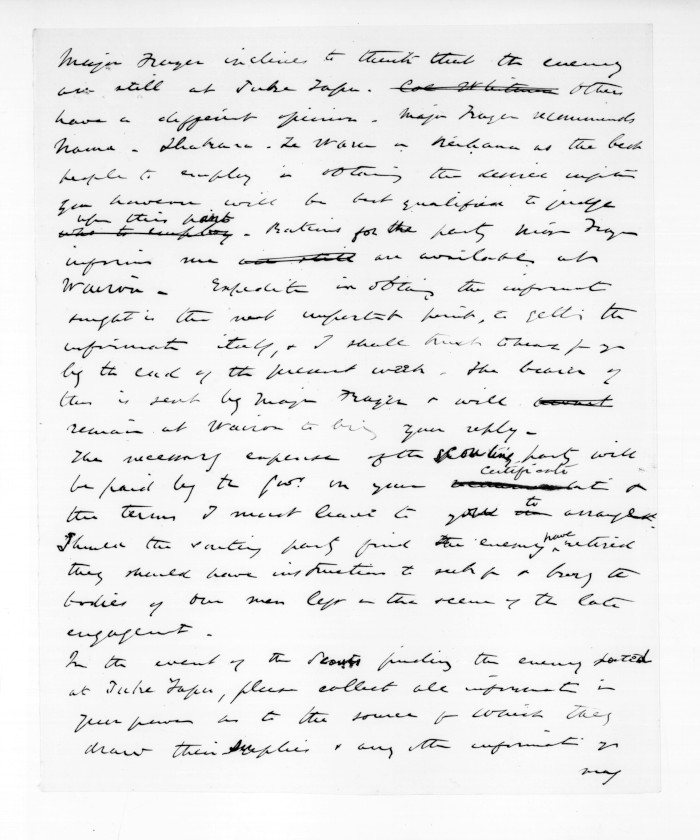 Major Frazer inclines to think that the enemy
are still at Puke Tapu. Col Whitmore Others
have a different opinion. Major Frazer recommends
Te Waru Reihana as the best
people to employ in obtaining the desired
you however will be best qualified to judge
upon this point
who to employ. Rations for the party Major Frazer
informs me are still are available at
Wairoa. Expedite in obtaing the informat
sought is the next important point, to gettig the
informati itself, & I shall trust to hear fr yo
by the end of the present week. The bearer of
this is sent by Major Frazer & will
remain at Wairoa to brig your reply.
The necessary expense of the scouting party will
certificate
be paid by the Govt on your &
the terms I must leave to you to arrange.
Should the scouting party find the enemy have retired
they should have instruction to seek for & bury the
bodies of our men left on the scene of the late
engagent.
In the event of the Scouts finding the enemy
at Puke Tapu, please collect all informati in
your power as to the source fr which they
draw their supplies & any othr informati yo
may